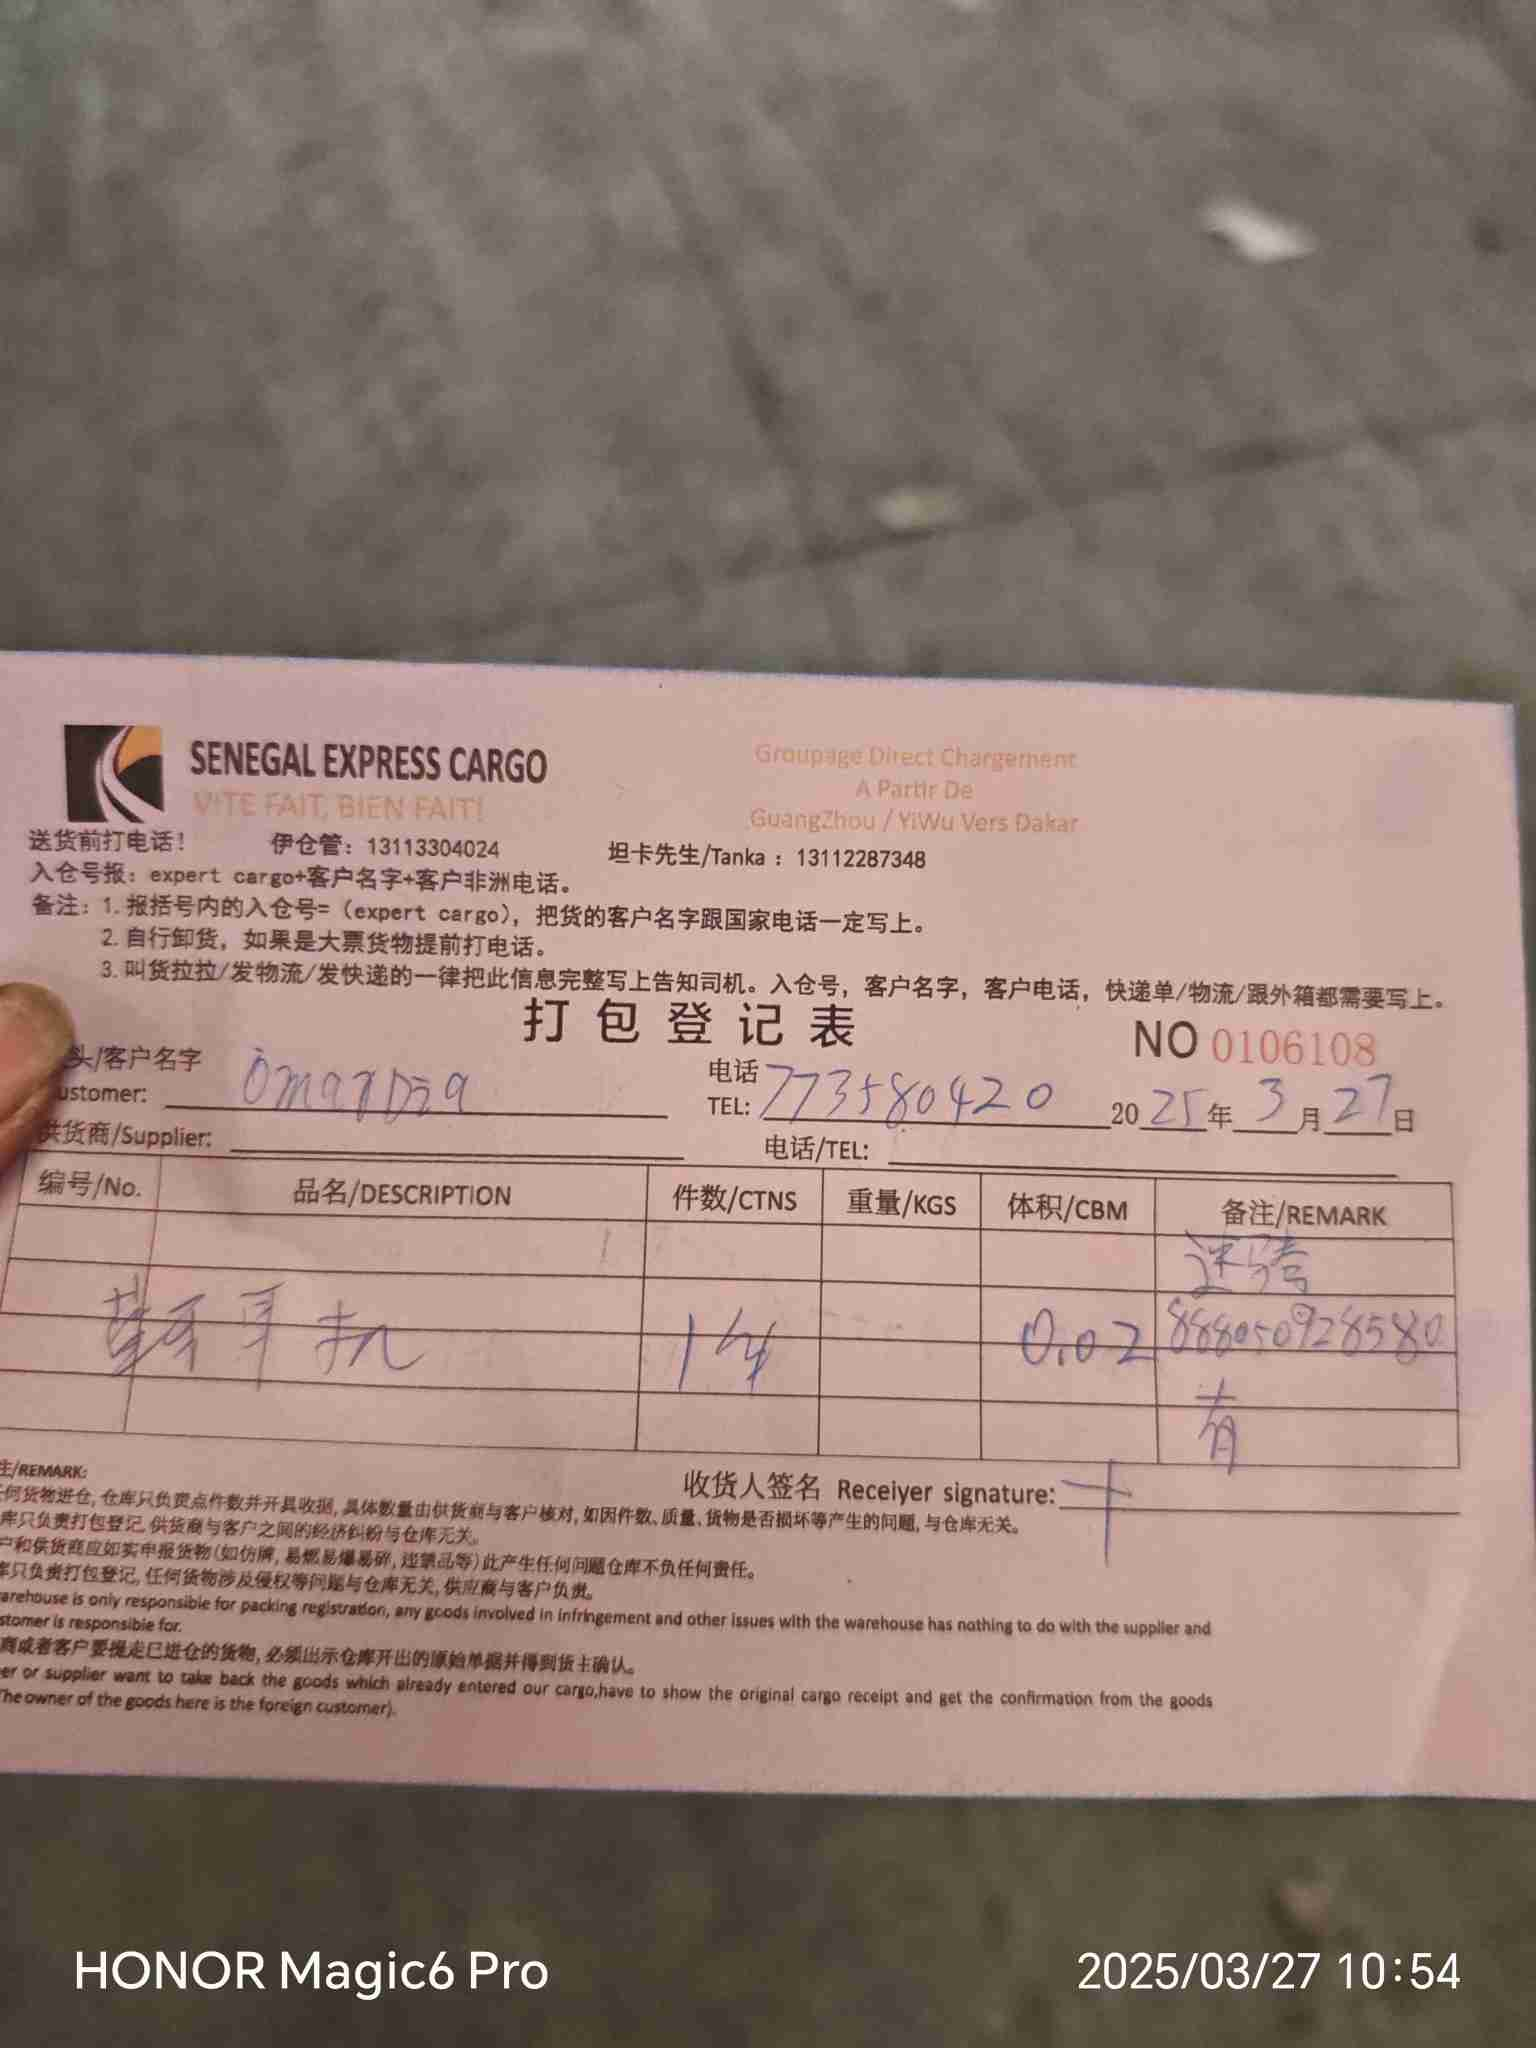 SENEGAL EXPRESS CARGO
VITE FAIT, BIEN FAIT!
Groupage Direct Chargement
A Partir De
GuangZhou / YiWu Vers Dakar
送货前打电话! 伊仓管: 13113304024 坦卡先生/Tanka : 13112287348
入仓号报: expert cargo+客户名字+客户非洲电话。
备注: 1. 报括号内的入仓号=(expert cargo), 把货的客户名字跟国家电话一定写上。
2. 自行卸货, 如果是大票货物提前打电话。
3. 叫货拉拉/发物流/发快递的一律把此信息完整写上告知司机。入仓号, 客户名字, 客户电话, 快递单/物流/跟外箱都需要写上。
打包登记表
NO 0106108
头/客户名字 电话
ustomer: Omar Dia TEL: 773580420 2025年3月27日
供货商/Supplier: 电话/TEL:
编号/No. 品名/DESCRIPTION 件数/CTNS 重量/KGS 体积/CBM 备注/REMARK
耳机 1件 0.02 888050928580
有
收货人签名 Receiyer signature:
注/REMARK:
任何货物进仓, 仓库只负责点件数并开具收据, 具体数量由供货商与客户核对, 如因件数、质量、货物是否损坏等产生的问题, 与仓库无关。
库只负责打包登记, 供货商与客户之间的经济纠纷与仓库无关。
户和供货商应如实申报货物(如仿牌, 易燃易爆易碎, 违禁品等)此产生任何问题仓库不负任何责任。
库只负责打包登记, 任何货物涉及侵权等问题与仓库无关, 供应商与客户负责。
arehouse is only responsible for packing registration, any goods involved in infringement and other issues with the warehouse has nothing to do with the supplier and
stomer is responsible for.
商或者客户要提走已进仓的货物, 必须出示仓库开出的原始单据并得到货主确认。
er or supplier want to take back the goods which already entered our cargo,have to show the original cargo receipt and get the confirmation from the goods
The owner of the goods here is the foreign customer).
HONOR Magic6 Pro
2025/03/27 10:54